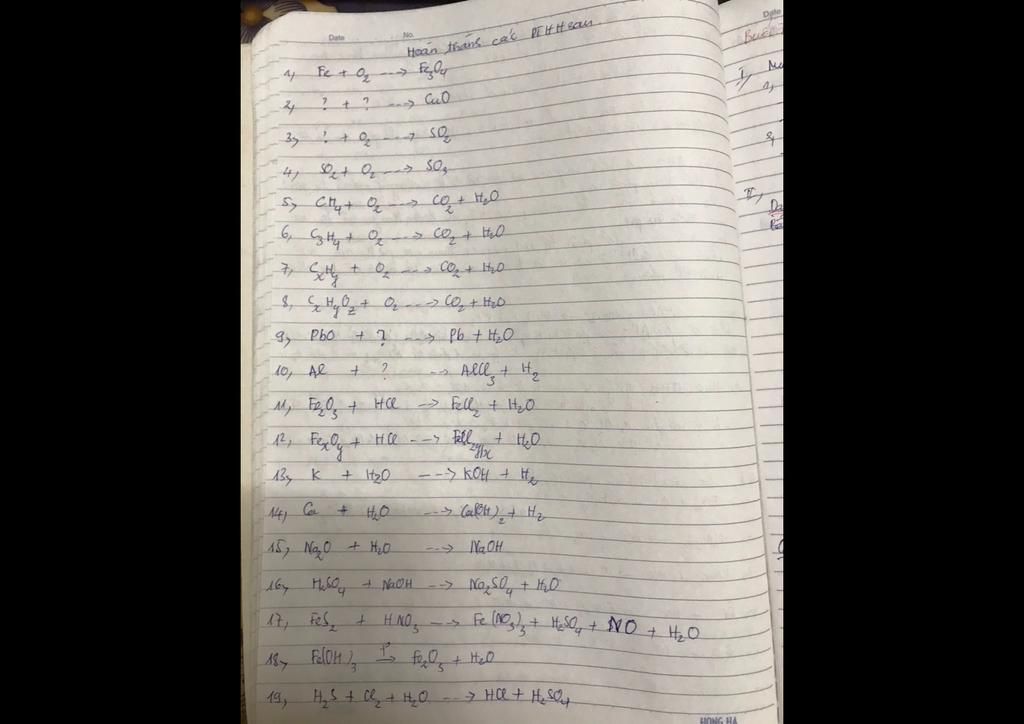 Date No.
Hoàn thành các PTHH sau
1, Fe + O₂ ---> Fe₃O₄
2, ? + ? ---> CuO
3, ? + O₂ ---> SO₂
4, SO₂ + O₂ ---> SO₃
5, CH₄ + O₂ ---> CO₂ + H₂O
6, C₃H₄ + O₂ ---> CO₂ + H₂O
7, CₓHy + O₂ ---> CO₂ + H₂O
8, CₓHyOz + O₂ ---> CO₂ + H₂O
9, PbO + ? ---> Pb + H₂O
10, Al + ? --> AlCl₃ + H₂
11, Fe₂O₃ + HCl --> FeCl₂ + H₂O
12, FeₓOy + HCl ---> FeCl₂y/x + H₂O
13, K + H₂O ---> KOH + H₂
14, Ca + H₂O ---> Ca(OH)₂ + H₂
15, Na₂O + H₂O ---> NaOH
16, H₂SO₄ + NaOH --> Na₂SO₄ + H₂O
17, FeS₂ + HNO₃ --> Fe(NO₃)₃ + H₂SO₄ + NO + H₂O
18, Fe(OH)₃ t° → Fe₂O₃ + H₂O
19, H₂S + Cl₂ + H₂O ---> HCl + H₂SO₄
HONG HA
Date
I,
1,
2,
II,